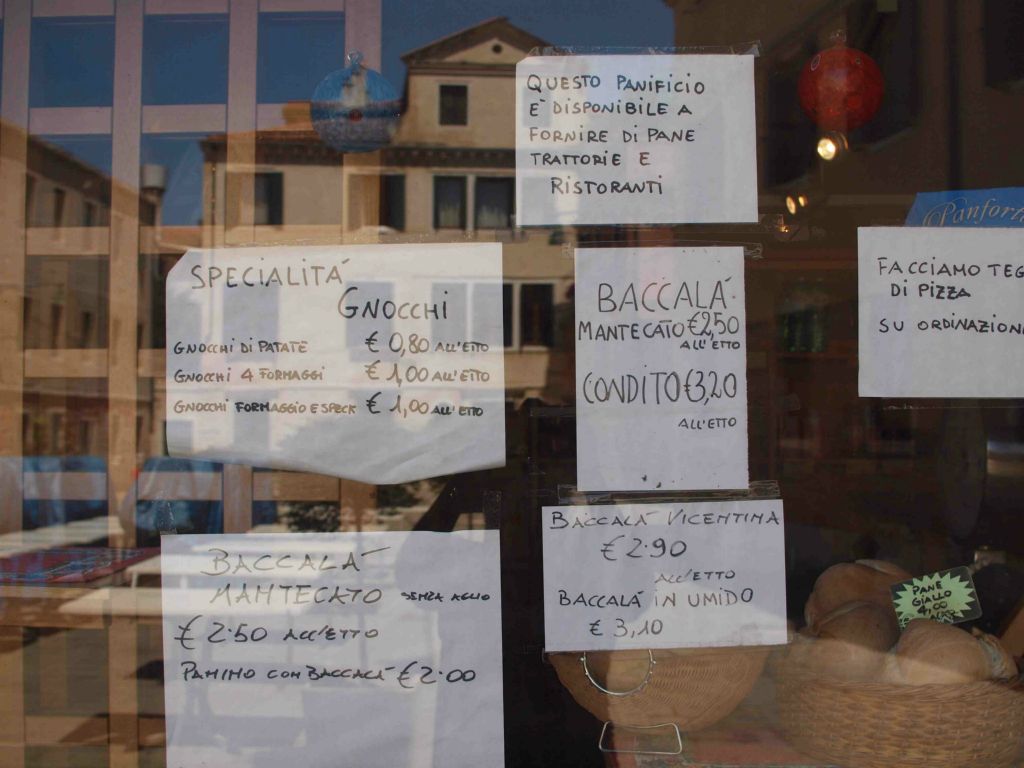 QUESTO PANIFICIO
E' DISPONIBILE A
FORNIRE DI PANE
TRATTORIE E
RISTORANTI
SPECIALITÁ
GNOCCHI
GNOCCHI DI PATATE € 0,80 ALL'ETTO
GNOCCHI 4 FORMAGGI € 1,00 ALL'ETTO
GNOCCHI FORMAGGIO E SPECK € 1,00 ALL'ETTO
BACCALÁ
MANTECATO €2,50
ALL'ETTO
CONDITO €3,20
ALL'ETTO
Panfort
FACCIAMO TEG
DI PIZZA
SU ORDINAZION
BACCALÁ
MANTECATO SENZA AGLIO
€ 2.50 ALL'ETTO
PANINO CON BACCALÁ € 2.00
BACCALÁ VICENTINA
€ 2.90
ALL'ETTO
BACCALÁ IN UMIDO
€ 3,10
PANE
GIALLO
4,00